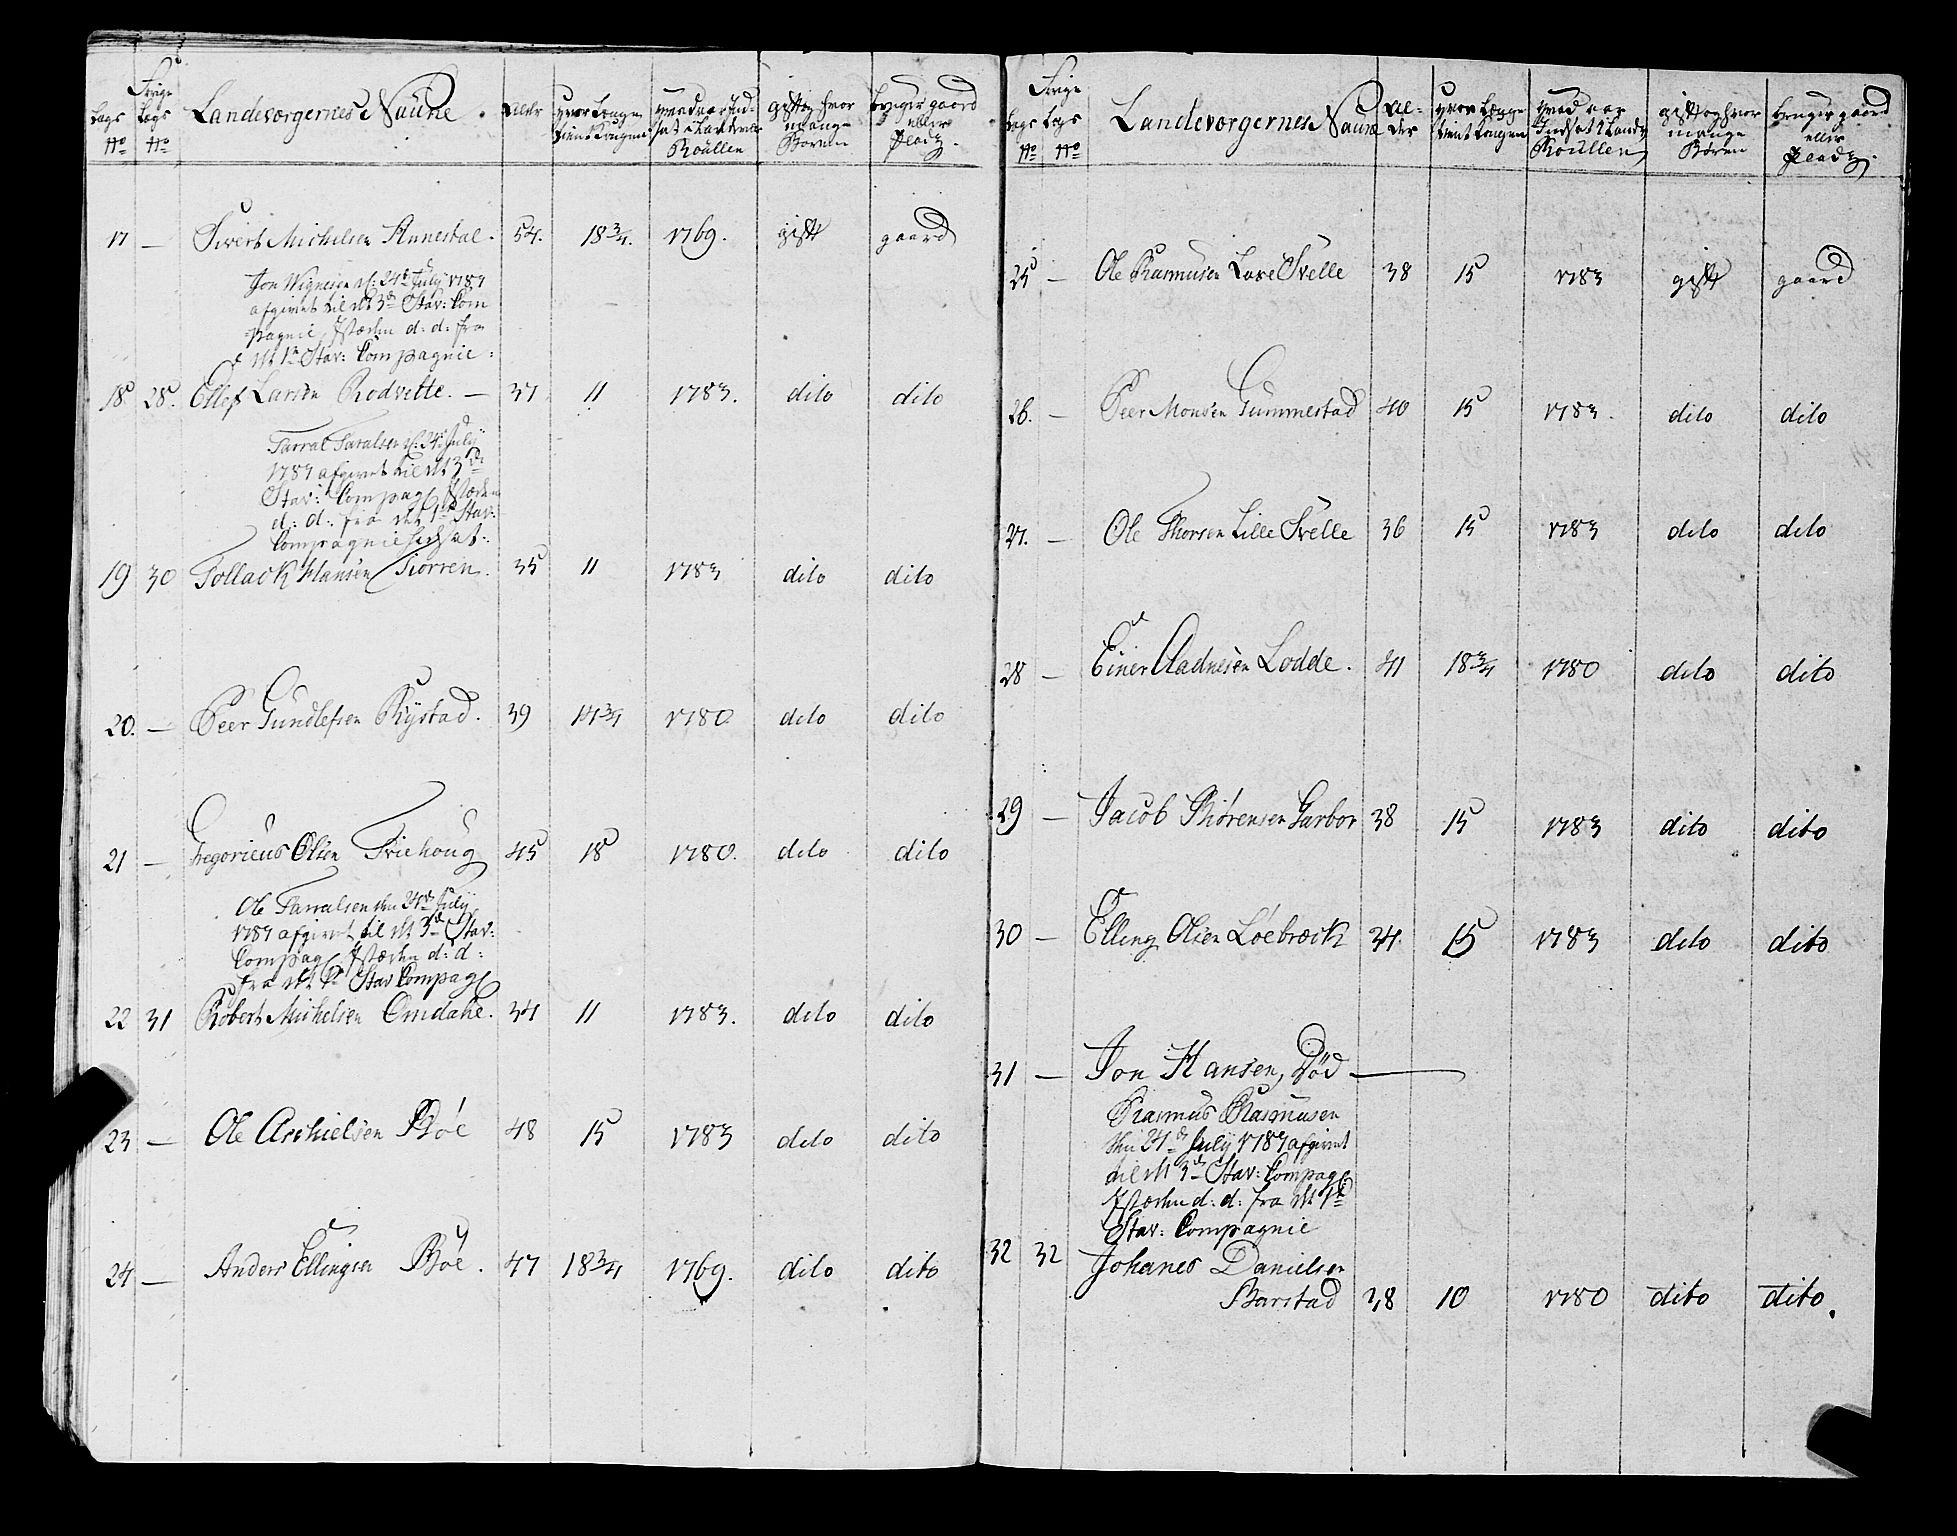 Lags No | Forige Lags No | Landeværgernes Naune. | Alder | hvor længe tient Kongen | hvad aar Indsat i Landvær Roullen | gift og hvor mange Børen | bruger gaard eller plads.
17 — Sivert Michelsen Annestal. 54. 18¾. 1769. gift gaard
Jon Wignesen d: 24de July 1787
afgivet til det 3de Stav: Com
pagnie, Istæden d: d: fra
det 1te Stav: Compagnie:
18 28. Ellef Larsen Rodvelte. — 37 11 1783. dito dito
Tarral Taralsen d: 24de July
1787 afgivet til det 3de
Stav: Compag Istæden
d: d: fra det 1te Stav:
Compagnie hidsat.
19 30 Tollack Hansen Tiorren. 35 11 1783 dito dito
20. — Peer Gundlefsen Rÿstad. 39 14¾ 1780 dito dito
21 — Gregorieus Olsen Friehoug 45 18 1780. dito dito
Ole Tarralsen den 24de July
1787 afgivet til det 3de Stav:
Compag Istæden d: d:
fra det 1te Stav Compag
22 31 Robert Michelsen Omdahl. 34 11 1783. dito dito
23 — Ole Aschielsen Bóe 48 15 1783 dito dito
24 — Anders Ellingsen Bóe. 47 18¾ 1769. dito dito
Lags No | Forige Lags No | Landeværgernes Naune | Al-der | hvor længe tient Kongen | hvad aar Indsat i Landv Roullen | gift og hvor mange Børen | bruger gaard eller plads.
25 — Ole Rasmusen Lare Svelle 38 15 1783 gift gaard
26. — Peer Monsen Gummestad 40 15 1783. dito dito
27. — Ole Thorsen Lille Svelle 36 15 1783 dito dito
28 — Einer Aadnesen Lodde. 41 18¾ 1780 dito dito
29 — Jacob Biórensen Garbor 38 15 1783 dito dito
30 — Elling Olsen Lóebræck 34. 15 1783 dito dito
31 — Jon Hansen, Død —
Rasmus Rasmusen
den 24de July 1787 afgivet
til det 3de Stav: Compag
Istæden d: d: fra det 1te
Stav: Compagnie
32 32 Johanes Danielsen
Barstad 38 10 1780 dito dito.